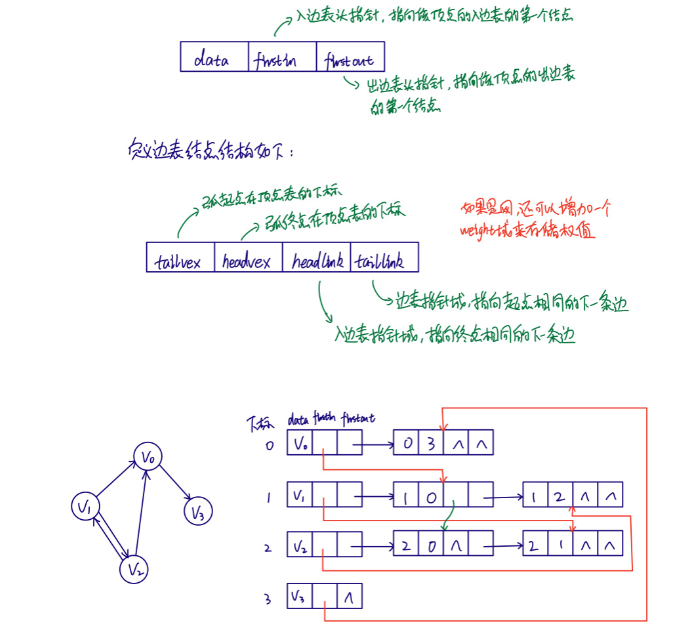 入边表头指针,指向该顶点的入边表的第一个结点
data firstIn firstout
出边表头指针,指向该顶点的出边表
的第一个结点
定义边表结点结构如下:
弧起点在顶点表的下标
弧终点在顶点表的下标
如果是网,还可以增加一个
weight域来存储权值
tailvex headvex headlink taillink
边表指针域,指向起点相同的下一条边
入边表指针域,指向终点相同的下一条边
下标 data firstIn firstout
0 V₀ 0 3 ∧ ∧
1 V₁ 1 0 1 2 ∧ ∧
2 V₂ 2 0 ∧ 2 1 ∧ ∧
3 V₃ ∧
V₀
V₁
V₃
V₂